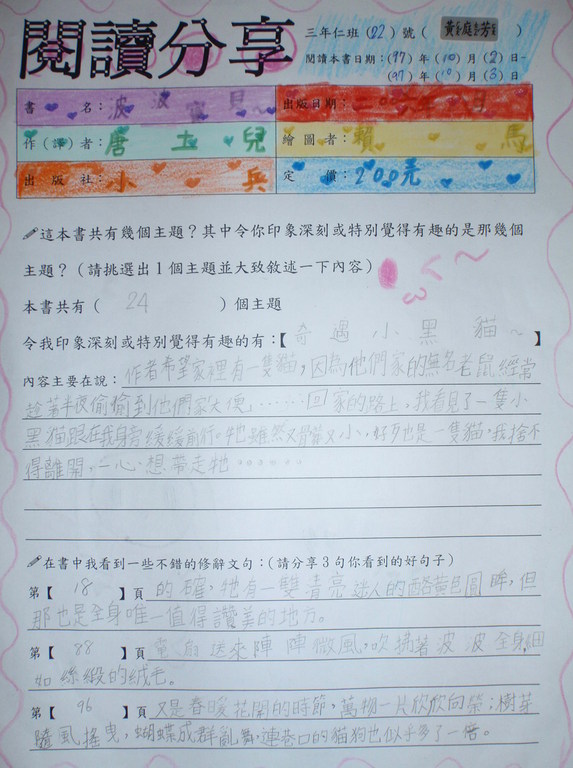 閱讀分享
三年仁班(22)號( 黃庭芳 )
閱讀本書日期:(97)年(10)月(2)日-
(97)年(10)月(3)日
書 名:波波 見 出版日期:二 年 月
作(譯)者:唐土兒 繪圖者:賴馬
出版社:小兵 定 價:200元
這本書共有幾個主題?其中令你印象深刻或特別覺得有趣的是那幾個
主題?(請挑選出1個主題並大致敘述一下內容)
本書共有( 24 )個主題
令我印象深刻或特別覺得有趣的有:【奇遇小黑貓~】
內容主要在說:作者希望家裡有一隻貓,因為他們家的無名老鼠經常
趁著半夜偷偷到他們家大便,……回家的路上,我看見了一隻小
黑貓跟在我身旁緩緩前行。牠雖然又髒又小,好歹也是一隻貓,我捨不
得離開,一心想帶走牠……
在書中我看到一些不錯的修辭文句:(請分享3句你看到的好句子)
第【 18 】頁 的確,牠有一雙清亮迷人的酪黃色圓眸,但
那也是全身唯一值得讚美的地方。
第【 88 】頁 窗前送來陣陣微風,吹拂著波波全身細
如絲緞的絨毛。
第【 96 】頁 又是春暖花開的時節,萬物一片欣欣向榮;樹芽
隨風搖曳,蝴蝶成群亂舞,連巷口的貓狗也似乎多了一倍。